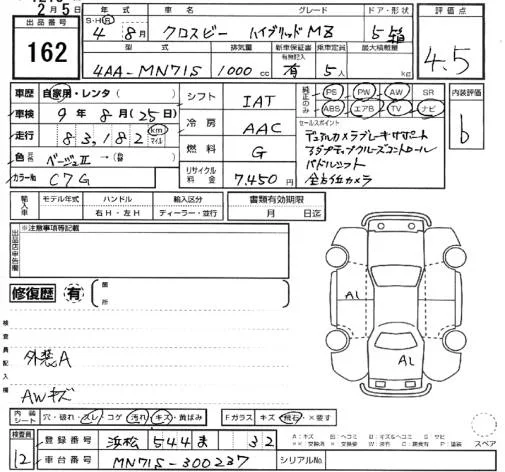 2月5日
出品番号 162
年式 S・H・R 4年 8月
車名 クロスビー
グレード ハイブリッドMZ
ドア・形状 5 箱
評価点 4.5
型式 4AA-MN71S
排気量 1000cc
新車保証書 有無記入 有
乗車定員 5人
最大積載量 kg
車歴 自家用・レンタ( )
シフト IAT
純正のみ PS PW AW SR ABS エアB TV ナビ
内装評価 b
車検 9年 8月(25日)
冷房 AAC
セールスポイント
デュアルカメラブレーキサポート
アダプティブクルーズコントロール
パドルシフト
全方位カメラ
走行 83,182 km マイル
燃料 G
色 元色 ベージュII →(替 )
カラーNo C7G
リサイクル料金 7,450円
輸入車 モデル年式 ハンドル 右H・左H 輸入区分 ディーラー・並行
書類有効期限 月 日迄
出品店申告欄 ※注意事項等記載
修復歴 有 箇所
検査員記入欄
外装A
AWキズ
A1
A1
内装シート 穴・破れ・スレ・コゲ 汚れ・キズ・黄ばみ
Fガラス キズ 飛石 ×要す
スペア
検査員 12
登録番号 浜松 544 ま 32
車台番号 MN71S-300237
シリアルNo